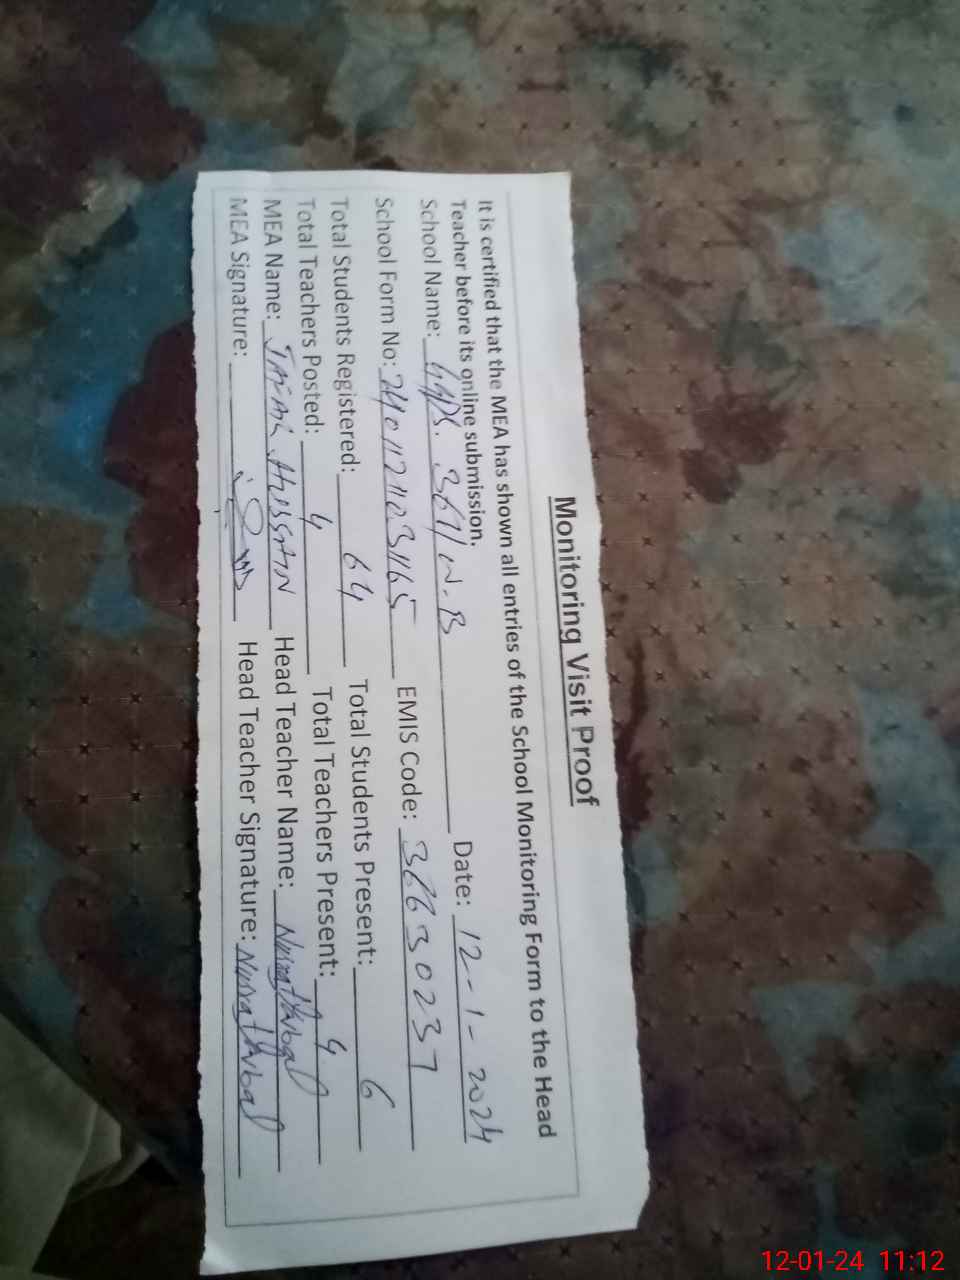 Monitoring Visit Proof
It is certified that the MEA has shown all entries of the School Monitoring Form to the Head
Teacher before its online submission.
School Name: GGPS. 361/W.B Date: 12-1-2024
School Form No: EMIS Code: 36630237
Total Students Registered: 64 Total Students Present: 6
Total Teachers Posted: 4 Total Teachers Present: 4
MEA Name: Hussain Head Teacher Name: Nusrat Iqbal
MEA Signature: Head Teacher Signature: Nusrat Iqbal
12-01-24 11:12